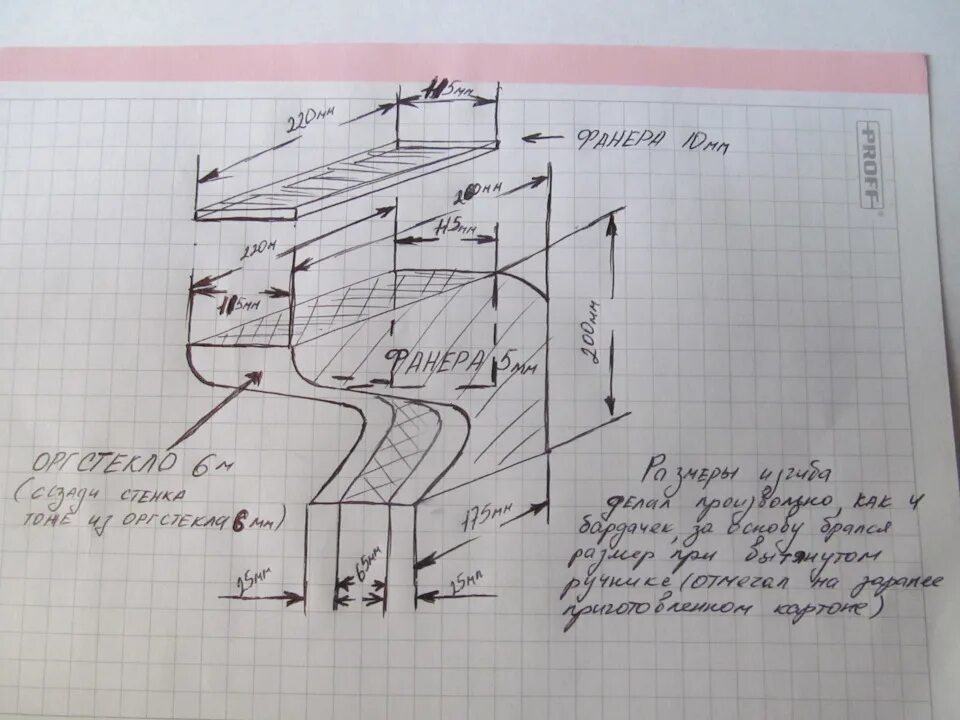 115мм
220мм
ФАНЕРА 10мм
PROFF
260мм
115мм
220м
115мм
200мм
ФАНЕРА 5мм
ОРГСТЕКЛО 6м
(сзади стенка
тоже из оргстекла 6мм)
Размеры изгиба
делал произвольно, как и
бардачек, за основу брался
размер при вытянутом
ручнике (отмечал на заранее
приготовленном картоне)
175мм
25мм
65мм
25мм